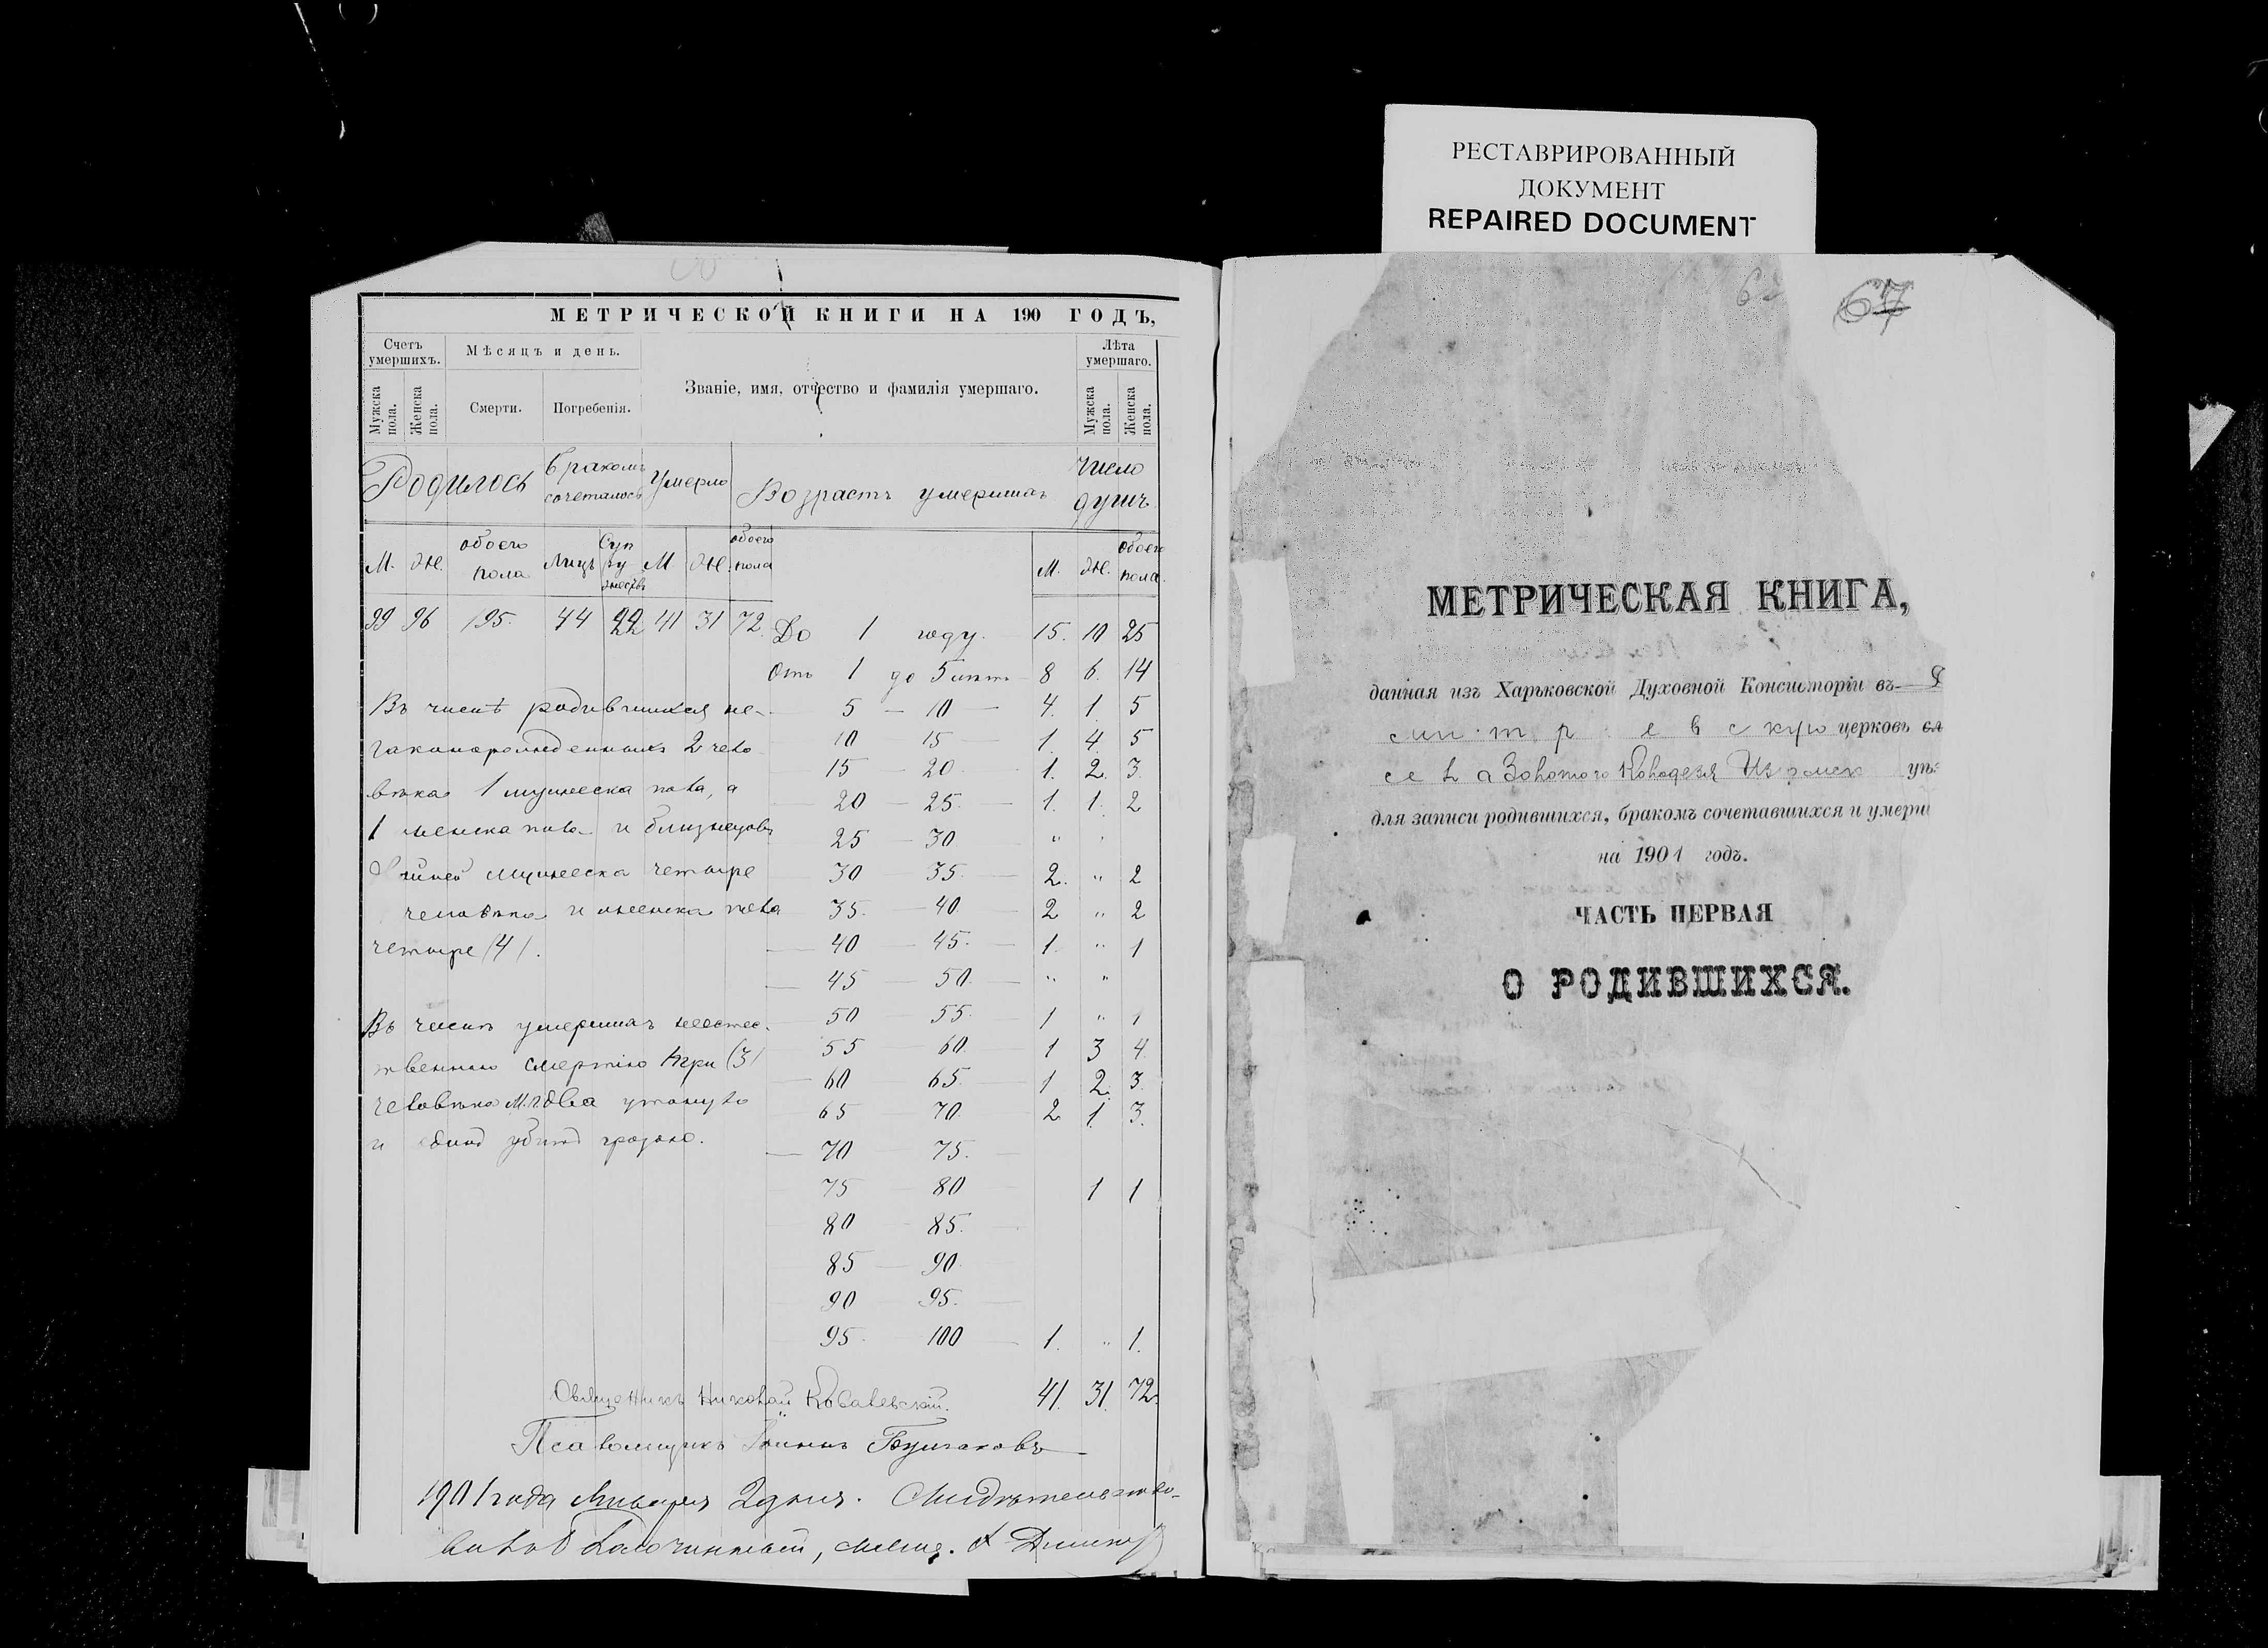 РЕСТАВРИРОВАННЫЙ
ДОКУМЕНТ
REPAIRED DOCUMENT
МЕТРИЧЕСКОЙ КНИГИ НА 190 ГОДЪ,
Счетъ умершихъ.
Мѣсяцъ и день.
Званіе, имя, отчество и фамилія умершаго.
Лѣта умершаго.
Мужска пола.
Женска пола.
Смерти.
Погребенія.
Мужска пола.
Женска пола.
Родилось
бракомъ сочеталось
Умерло
Возрастъ умершихъ
Число душъ
М. Ж. обоего пола Лицъ Супружествъ М. Ж. обоего пола М. Ж. обоего пола.
99 96 195. 44 22 41 31 72. До 1 году. 15. 10 25
Отъ 1 до 5 лѣтъ 8 6. 14
Въ числѣ родившихся не-
5 — 10 — 4. 1. 5
законорожденныхъ 2 чело
10 15 1. 4. 5
15 20 1. 2. 3.
вѣка 1 мужеска пола, а
20 25. 1. 1. 2
1 женска пола и близнецовъ
25 30 " "
мужеска четыре
30 35. 2. " 2
человѣка и женска пола
35. 40 2 " 2
четыре (4).
40 45. 1. " 1
45 50. " "
Въ числѣ умершихъ неестес-
50 55. 1 " 1
твенною смертію три (3)
55 60. 1 3 4.
60 65. 1 2. 3.
человѣка М. п. два утонуло
65 70. 2 1. 3.
и одинъ убитъ грозою.
70 75.
75 80 1 1
80 85.
85 90.
90 95.
95. 100 1. " 1.
Священникъ Николай Ковалевскій.
41. 31. 72.
Псаломщикъ Іоаннъ
1901 года Января 2 дня. Свидѣтельство-
валъ Благочинный, свящ.
67
МЕТРИЧЕСКАЯ КНИГА,
данная изъ Харьковской Духовной Консисторіи въ
церковь сл
села Золотого Колодезя Изюмск уѣ
для записи родившихся, бракомъ сочетавшихся и умерш
на 1901 годъ.
ЧАСТЬ ПЕРВАЯ
О РОДИВШИХСЯ.